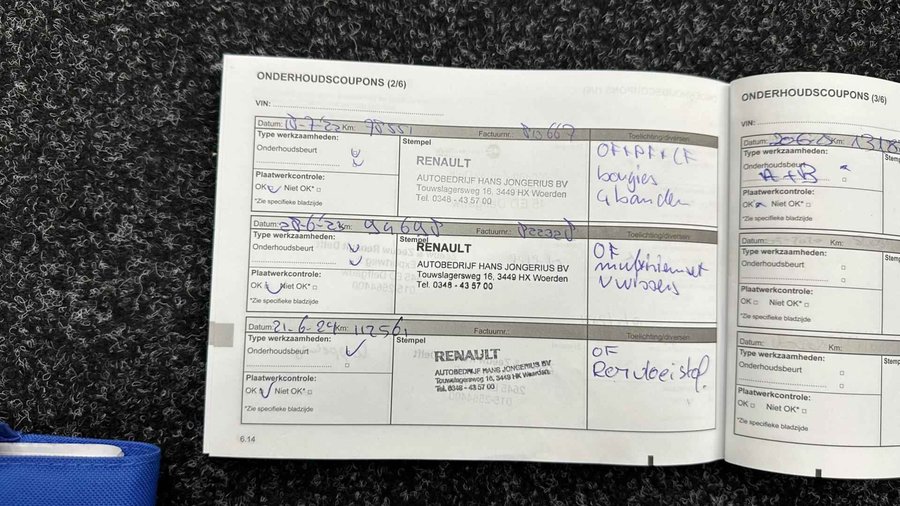 ONDERHOUDSCOUPONS (2/6)
VIN:
Datum: Km: Factuurnr.: Toelichting/diversen
Type werkzaamheden: Stempel
Onderhoudsbeurt
RENAULT
AUTOBEDRIJF HANS JONGERIUS BV
Touwslagersweg 16, 3449 HX Woerden
Tel. 0348 - 43 57 00
Plaatwerkcontrole:
OK Niet OK*
*Zie specifieke bladzijde
OF+PF+CF
bougies
4 banden
Datum: Km: 94698 Factuurnr.: Toelichting/diversen
Type werkzaamheden: Stempel
Onderhoudsbeurt
RENAULT
AUTOBEDRIJF HANS JONGERIUS BV
Touwslagersweg 16, 3449 HX Woerden
Tel. 0348 - 43 57 00
Plaatwerkcontrole:
OK Niet OK*
*Zie specifieke bladzijde
OF
V wissers
Datum: 21-6-24 Km: 112561 Factuurnr.: Toelichting/diversen
Type werkzaamheden: Stempel
Onderhoudsbeurt
RENAULT
AUTOBEDRIJF HANS JONGERIUS BV
Touwslagersweg 16, 3449 HX Woerden
Tel. 0348 - 43 57 00
Plaatwerkcontrole:
OK Niet OK*
*Zie specifieke bladzijde
OF
Remvloeistof
6.14
ONDERHOUDSCOUPONS (3/6)
VIN:
Datum: Km:
Type werkzaamheden:
Onderhoudsbeurt
A+B
Plaatwerkcontrole:
OK Niet OK*
*Zie specifieke bladzijde
Datum: Km:
Type werkzaamheden:
Onderhoudsbeurt
Plaatwerkcontrole:
OK Niet OK*
*Zie specifieke bladzijde
Datum: Km:
Type werkzaamheden:
Onderhoudsbeurt
Plaatwerkcontrole:
OK Niet OK*
*Zie specifieke bladzijde